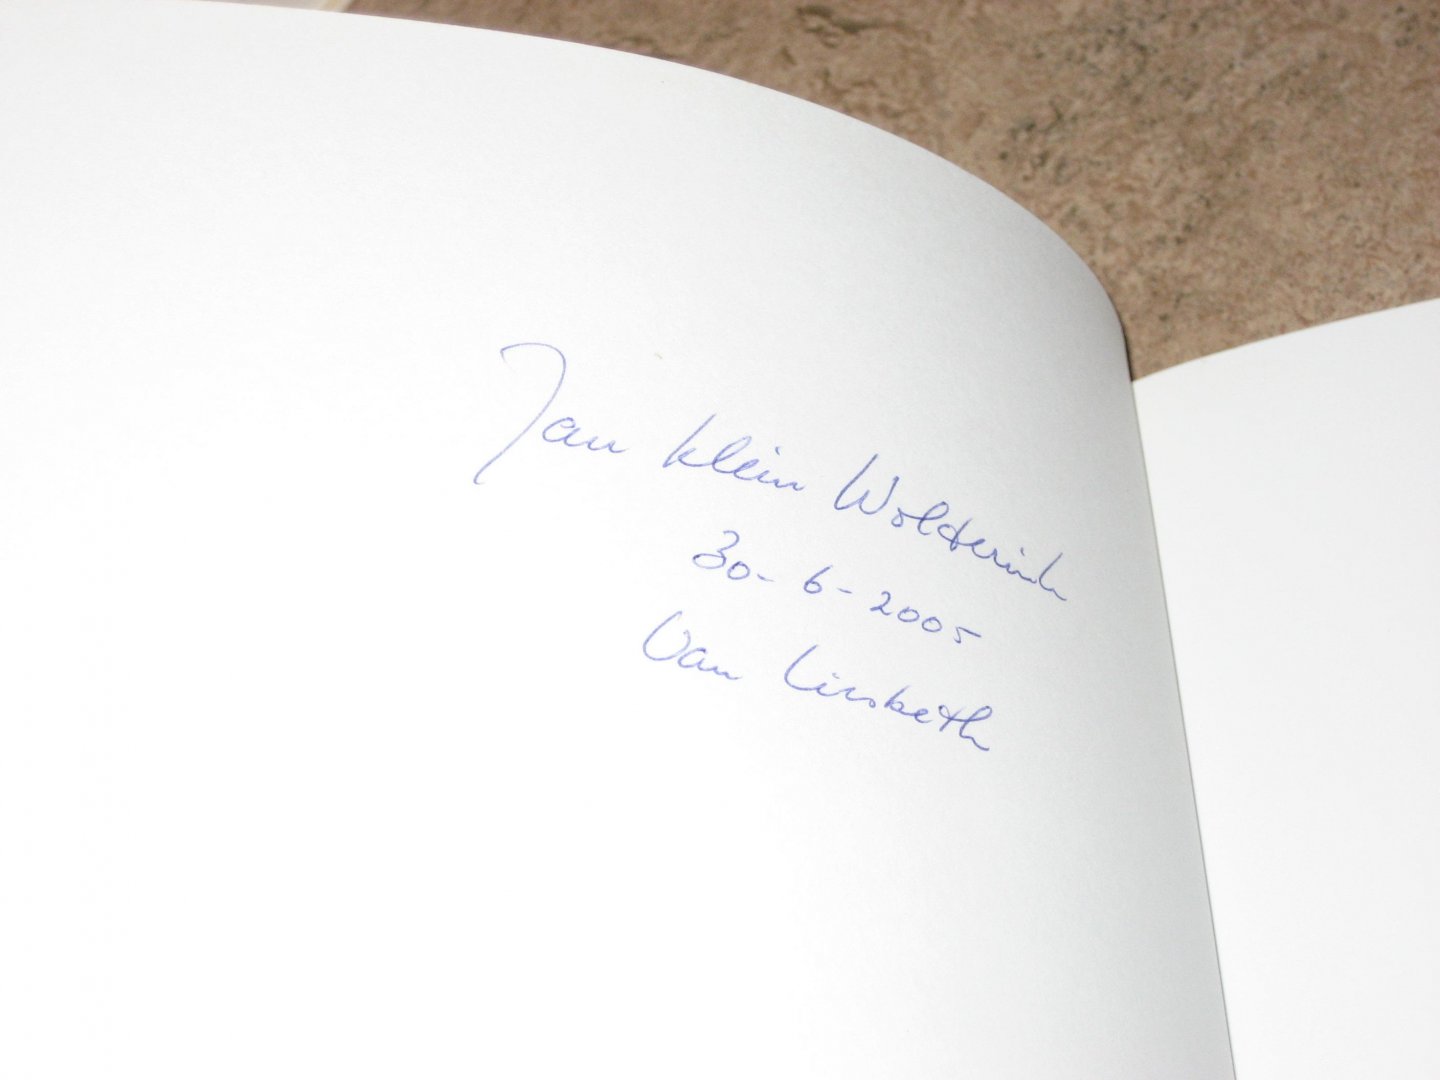 Jan Klein Wolterink
30-6-2005
Van Liesbeth